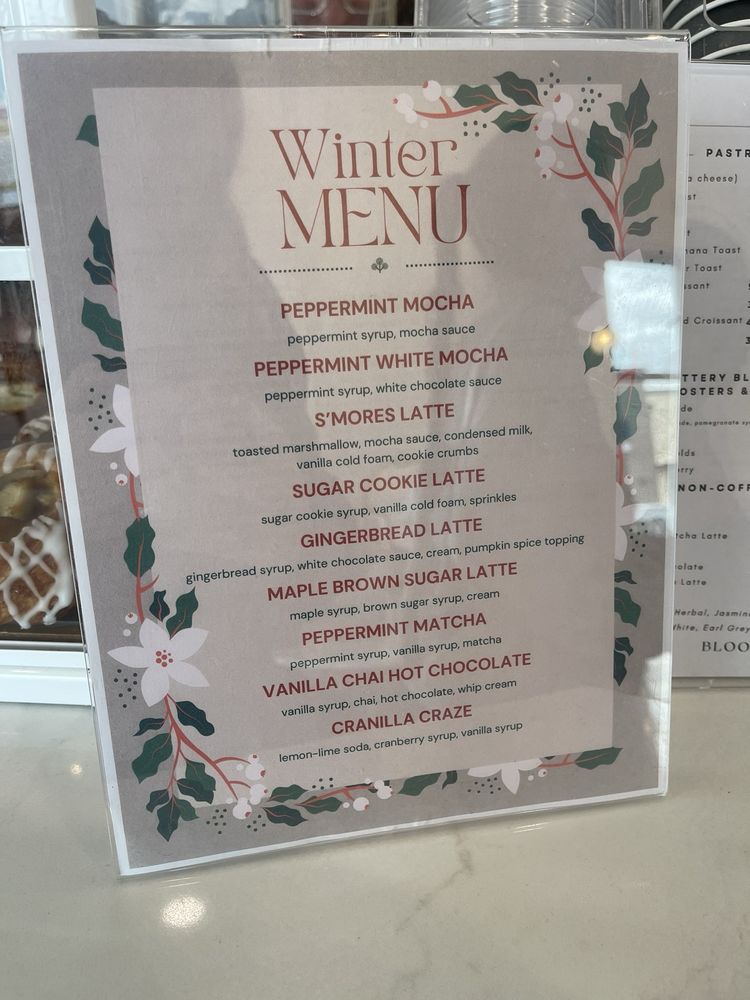 Winter
MENU
PEPPERMINT MOCHA
peppermint syrup, mocha sauce
PEPPERMINT WHITE MOCHA
peppermint syrup, white chocolate sauce
S'MORES LATTE
toasted marshmallow, mocha sauce, condensed milk,
vanilla cold foam, cookie crumbs
SUGAR COOKIE LATTE
sugar cookie syrup, vanilla cold foam, sprinkles
GINGERBREAD LATTE
gingerbread syrup, white chocolate sauce, cream, pumpkin spice topping
MAPLE BROWN SUGAR LATTE
maple syrup, brown sugar syrup, cream
PEPPERMINT MATCHA
peppermint syrup, vanilla syrup, matcha
VANILLA CHAI HOT CHOCOLATE
vanilla syrup, chai, hot chocolate, whip cream
CRANILLA CRAZE
lemon-lime soda, cranberry syrup, vanilla syrup
PASTR
a cheese)
st
t
nana Toast
r Toast
issant
d Croissant
TTERY BL
OSTERS &
de
ade, pomegranate sy
olds
erry
NON-COFF
tcha Latte
olate
e Latte
Herbal, Jasmin
White, Earl Grey
BLOO